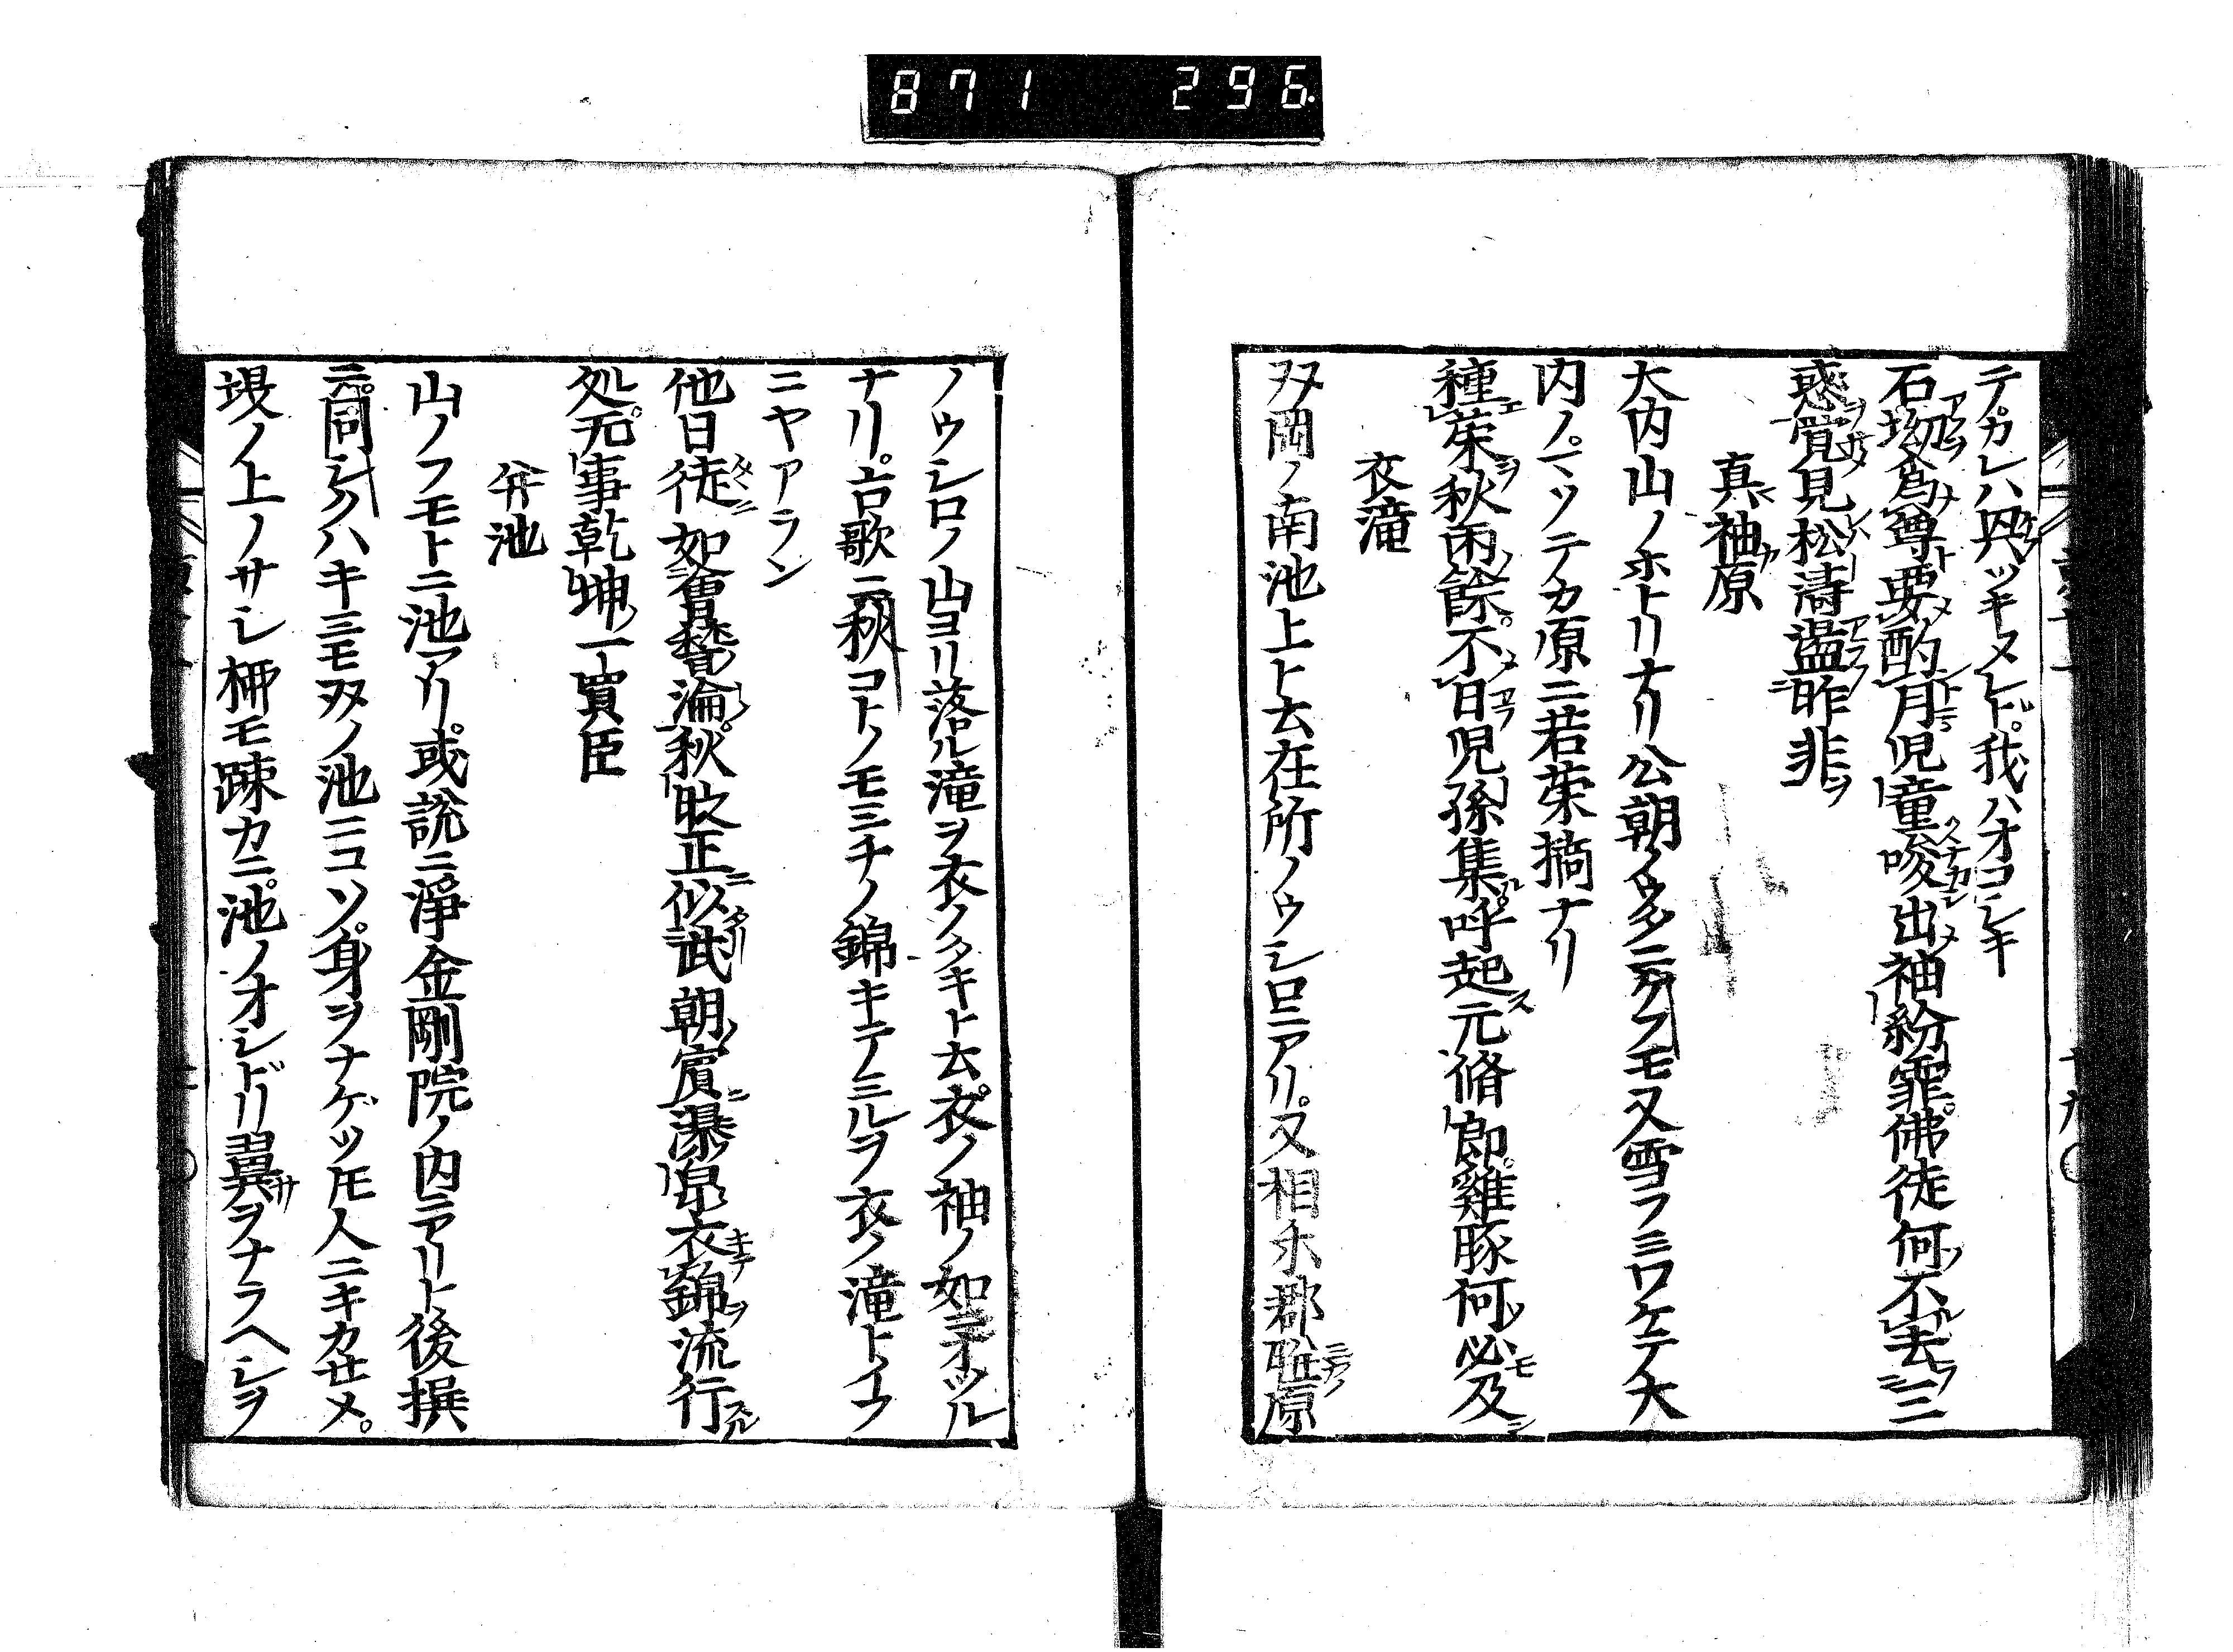 871 296
テカレハ興ツキヌレド。我ハオコシキ
石坳為尊要酌月児童唆出袖紛霏。佛徒何不去三
惑覚見松濤盪昨非
真袖原
大内山ノホトリナリ公朝ノウタニタクフモ又雪フミワケテ大
内ノマツテカ原ニ若菜摘ナリ
種菜秋雨餘。不日児孫集。呼起元脩郎。雞豚何必及
衣滝
双岡ノ南池上ト云在所ノウシロニアリ。又相楽郡瓶原
ノウシロノ山ヨリ落ル滝ヲ衣ノタキト云。衣ノ袖ノ如ニオツル
ナリ。古歌ニ秋コトノモミチノ錦キテミルヲ衣ノ滝トイフ
ニヤアラン
他日徒如曾替淪。秋時正似武朝賓瀑帛衣錦流行
処。无事乾坤一實臣
弁池
山ノフモトニ池アリ。或説ニ浄金剛院ノ内ニアリト後撰
ニ。同シクハキミモ双ノ池ニコソ。身ヲナケツトモ人ニキカセメ。
堤ノ上ノサシ柳モ疎カニ。池ノオシドリ翼ヲナラヘシヲ